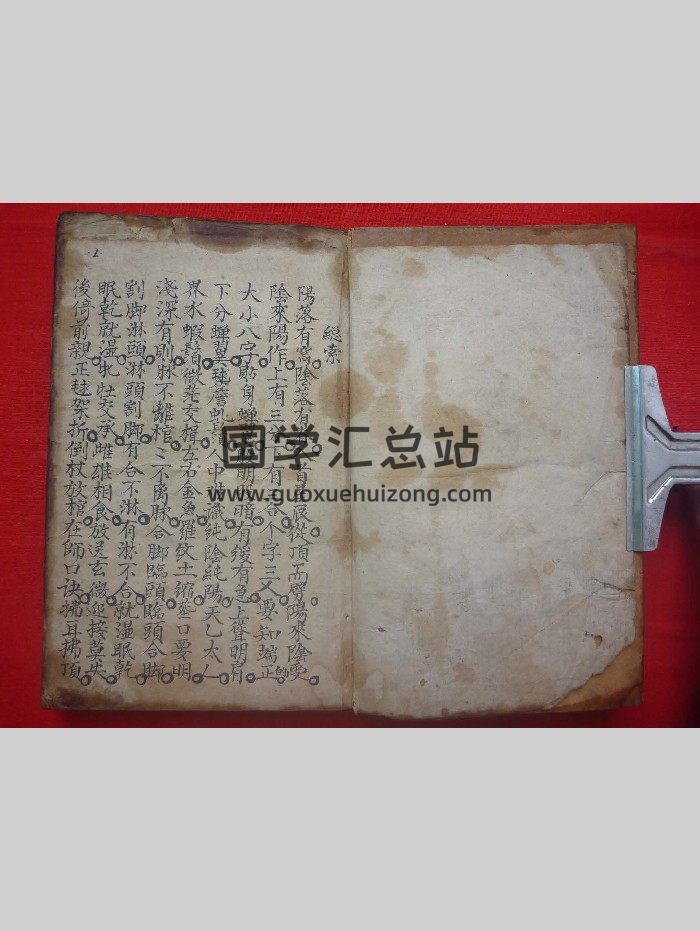 總索
陽落有窩陰落有 從頂而劈陽來陰受
陰來陽作上有三 下有 合个字三叉要知端的
大小八字貼身蟬 明暗有緩有急上聳明肩
下分蟬翼毬簷 人中 識純陰純陽天乙太乙
界水蝦鬚微茫交揖左右金魚羅紋土縮葬口要明
淺深有則脉不離棺棺不离脉合脚臨頭臨頭合脚
割脚淋頭淋頭割脚有合不淋有淋不合就濕眠乾
眠乾就濕牝牡交承雌雄相食放送玄微迎接莫失
後倚前親正毬架折倒杖放棺在師口訣拂耳拂頂
国学汇总站
www.guoxuehuizong.com